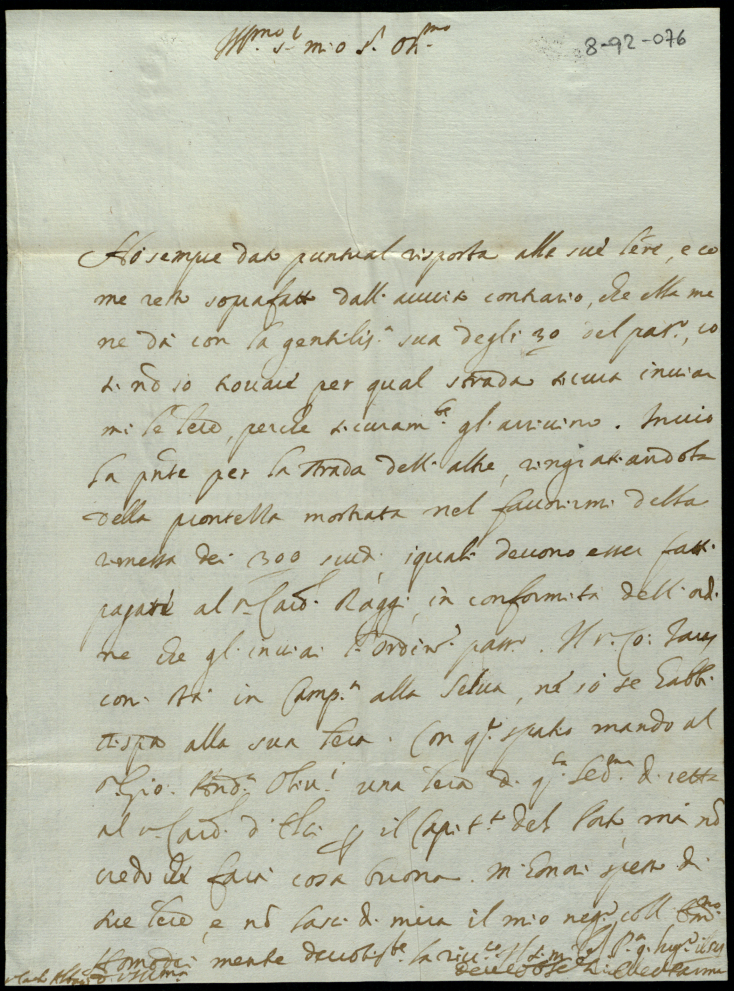 8-92-076
Ill.mo S.r mio S.r Oss.mo
Hò sempre dato puntual risposta alle sue l're, e co
me resto soprafatto dall'auuiso contrario, che ella me
ne dà con la gentiliss.a sua degli 30 del pas.to, co
si nõ sò trouare per qual strada sicura inuiar
mi le l're, perche sicuram.te gl'arriuino. Inuio
la pñte per la strada dell'altre, ringratiandola
della prontezza mostrata nel fauorirmi della
rimessa dei 300 scudi, i quali deuono esser fatti
pagare al s.r Card. Raggi, in conformità dell'ordi
ne che gl'inuiai l'ordin.o pass.o. Il s.r Co:
con: stà in Camp.a alla Selua, nè sò se habbi
risp.a alla sua l'ra. Con q.to spaccio mando al
s.r Gio: And.a Oliu.i una l'ra di q.ta diretta
al s.r Card. d'Elci p il Cap.to del mà nõ
credo che farà cosa buona. M'honori spesso di
sue l're, e nõ lasci di mira il mio neg.o coll'
mente deuotiss.te la riu.co